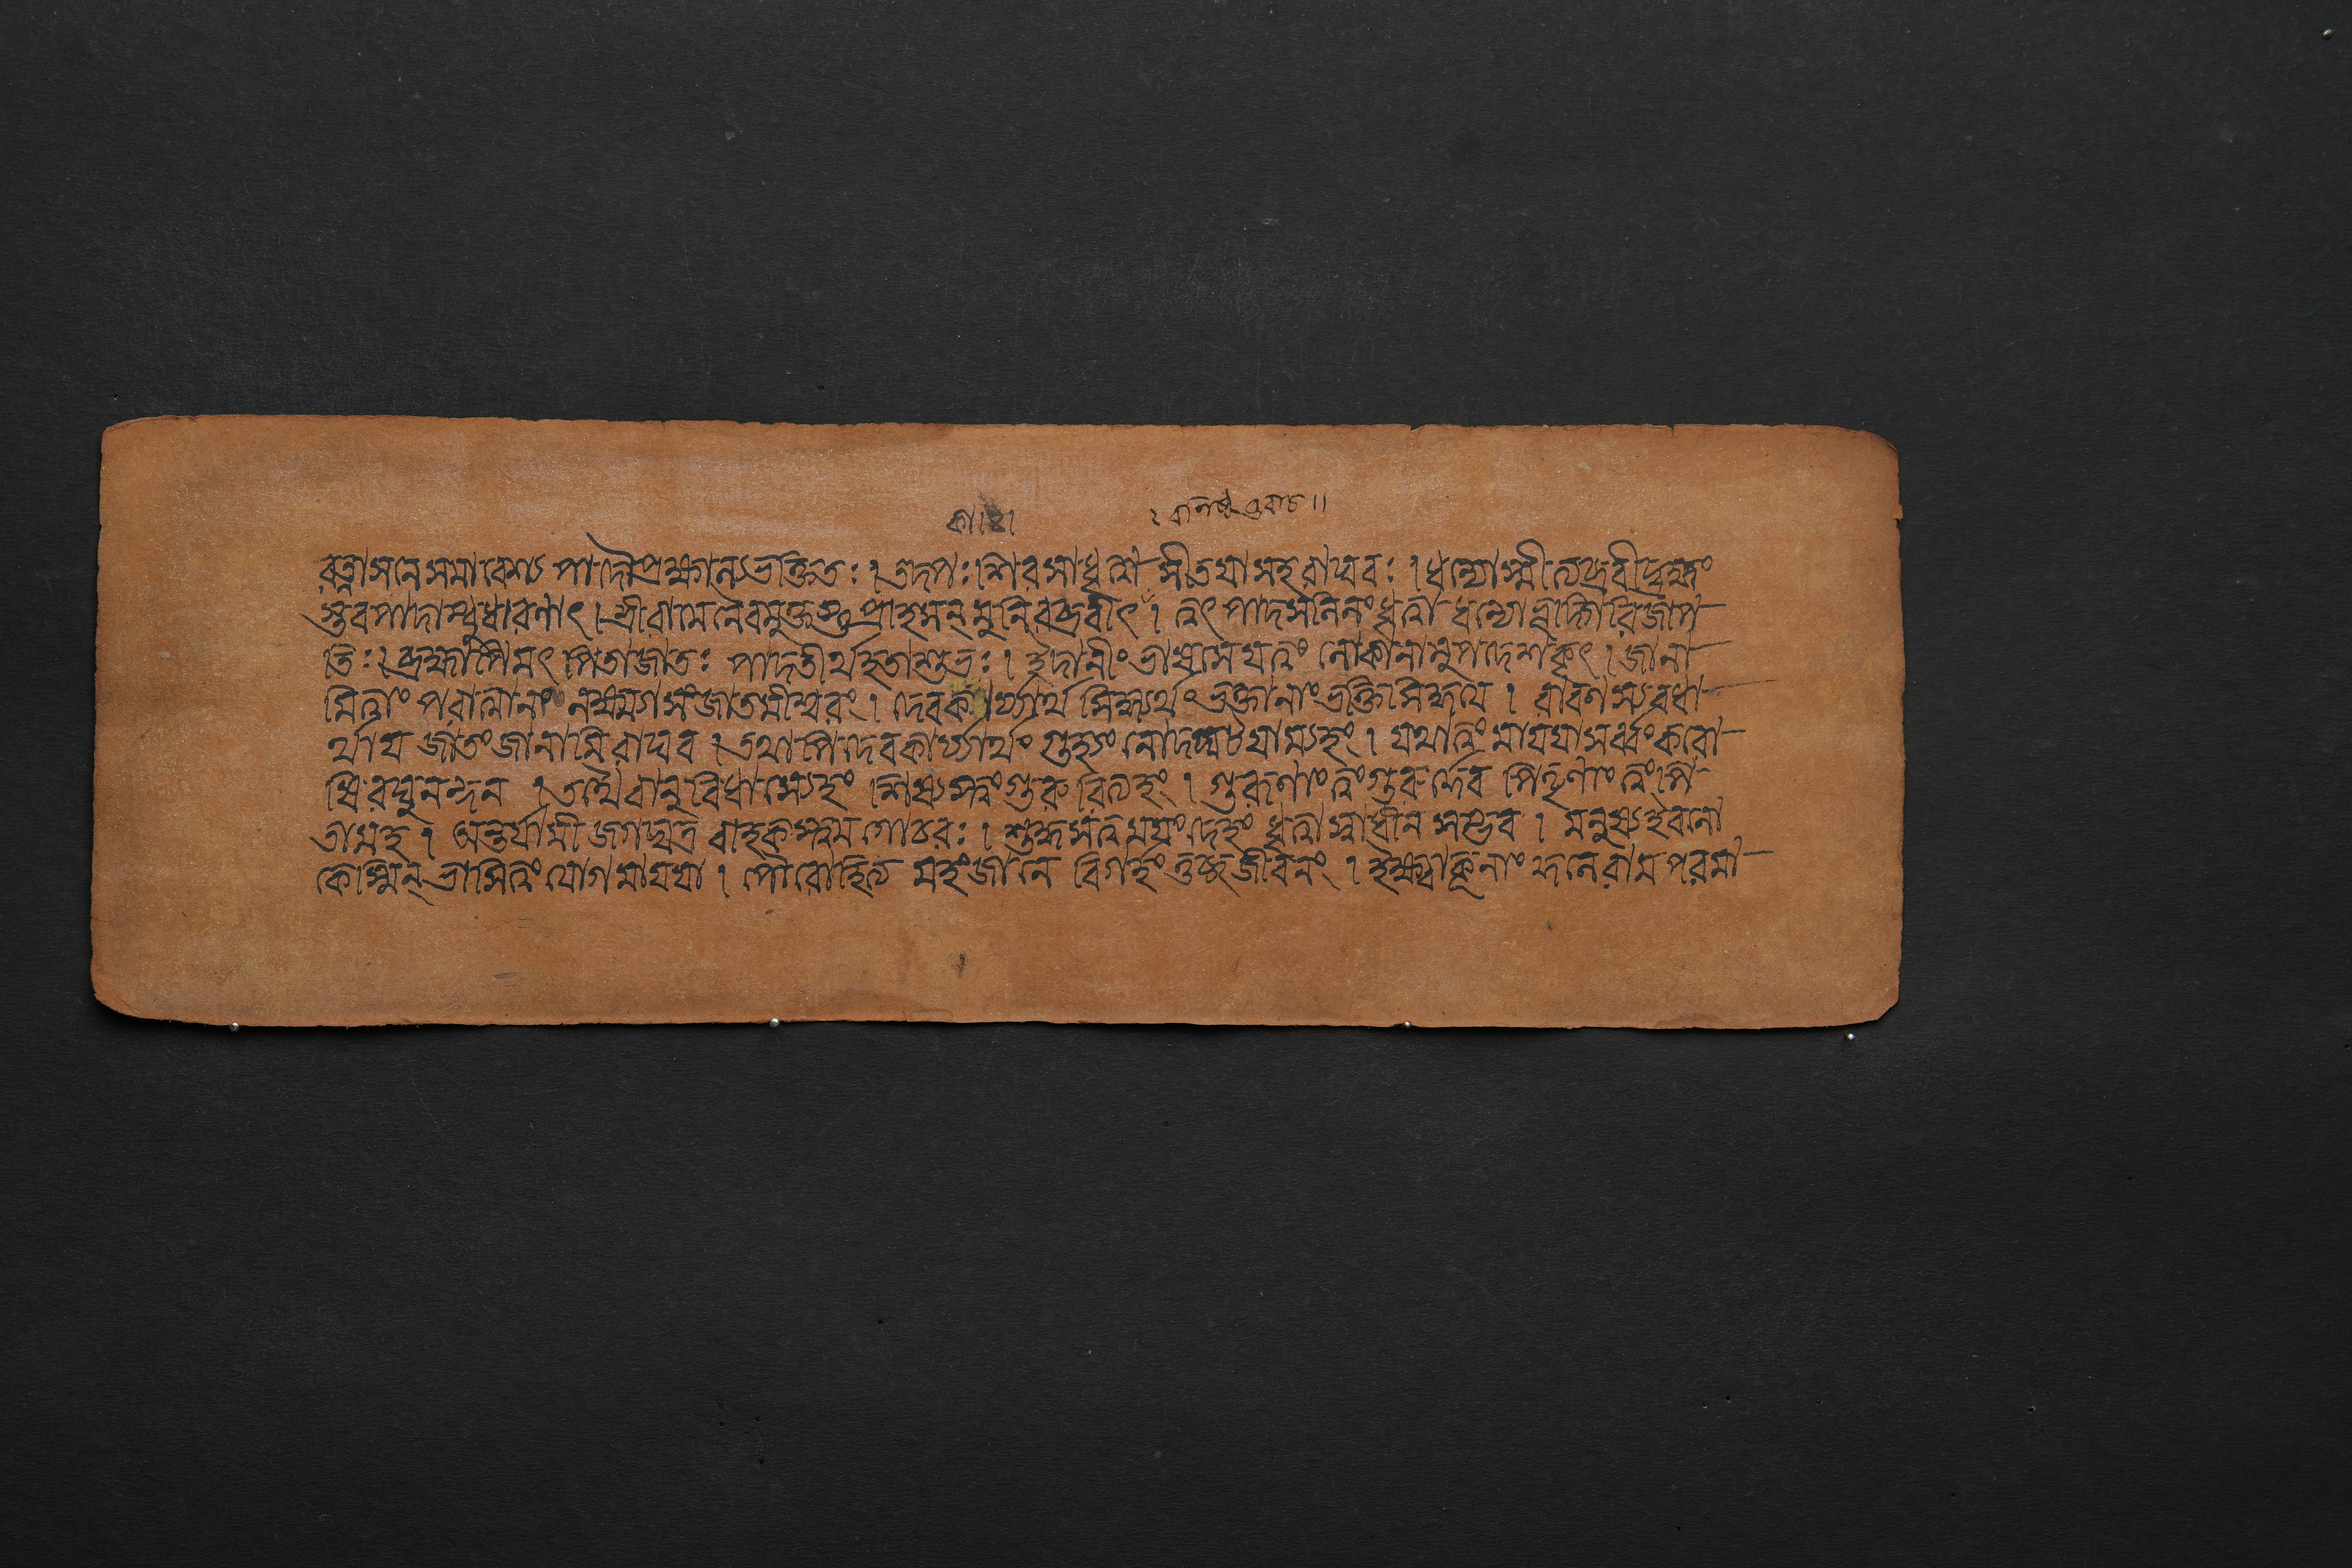 কা।২।
২ বশিষ্ঠ উবাচ॥
রত্নাসনে সমাবেশ্য পাদৌ প্রক্ষাল্য ভক্তিতঃ। তদপঃ শিরসা ধৃত্বা সীতয়া সহ রাঘবঃ। ধন্যোস্মীত্যব্রবীদ্রাম
স্তব পাদাম্বুধারণাৎ। শ্রীরামেনৈবমুক্তস্তু প্রাহসন্ মুনিরব্রবীৎ। ত্বৎ পাদসলিলং ধৃত্বা ধন্যোভূদ্গিরিজাপ
তিঃ। ব্রহ্মাপি মৎ পিতা জাতঃ পাদতীর্থহতাশুভঃ। ইদানীং ভাষসে যত্ত্বং লোকানামুপদেশকৃৎ। জানা
মি ত্বাং পরাত্মানং লক্ষ্ম্যা সংজাতমীশ্বরং। দেবকার্য্যার্থ সিদ্ধ্যর্থং ভক্তানাং ভক্তিসিদ্ধয়ে। রাবণস্য বধা
র্থায় জাতং জানামি রাঘব। তথাপি দেবকার্য্যার্থং গুহ্যং নোদঘাটয়াম্যহং। যথা ত্বং মায়য়া সর্ব্বং করো
ষি রঘুনন্দন। তথৈবানুবিধাস্যেহং শিষ্যস্ত্বং গুরুরিত্যহং। গুরূণাং ত্বং গুরুর্দেব পিতৄণাং ত্বং পি
তামহ। অন্তর্যামী জগদ্যাত্রা বাহকস্ত্বমগোচরঃ। শুদ্ধসত্বময়ং দেহং ধৃত্বা স্বাধীন সম্ভব। মনুষ্য ইব লো
কেস্মিন্ ভাসি ত্বং যোগমায়য়া। পৌরোহিত্যমহং জানে বিগর্হ্যং দুষ্যজীবনং। ইক্ষ্বাকূনাং কুলে রাম পরমা